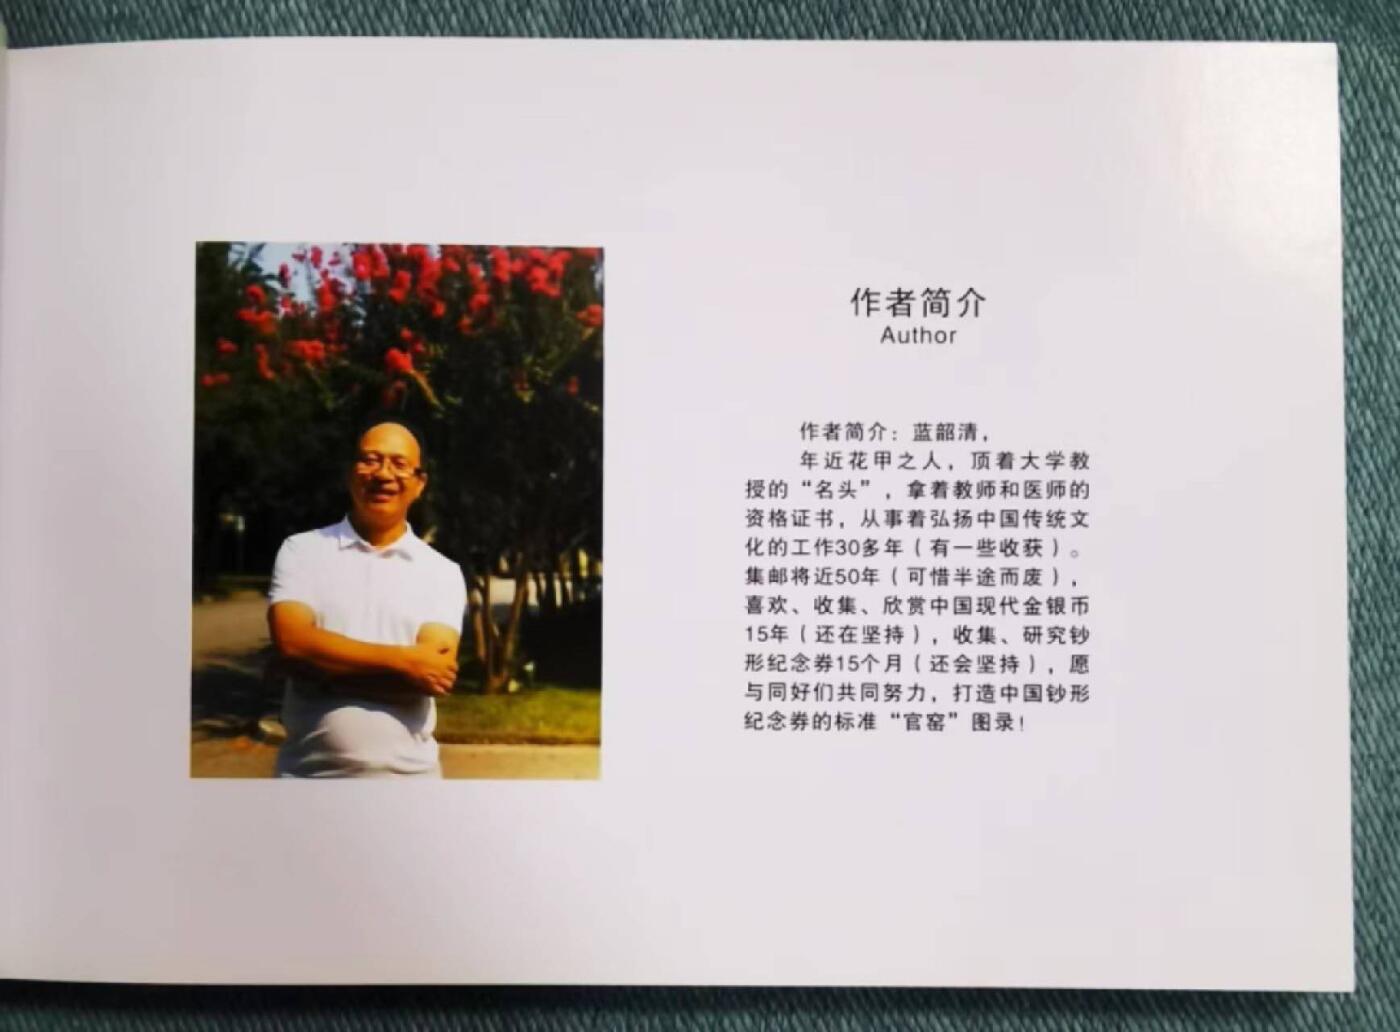 作者简介
Author
作者简介：蓝韶清，
年近花甲之人，顶着大学教
授的“名头”，拿着教师和医师的
资格证书，从事着弘扬中国传统文
化的工作30多年（有一些收获）。
集邮将近50年（可惜半途而废），
喜欢、收集、欣赏中国现代金银币
15年（还在坚持），收集、研究钞
形纪念券15个月（还会坚持），愿
与同好们共同努力，打造中国钞形
纪念券的标准“官窑”图录！